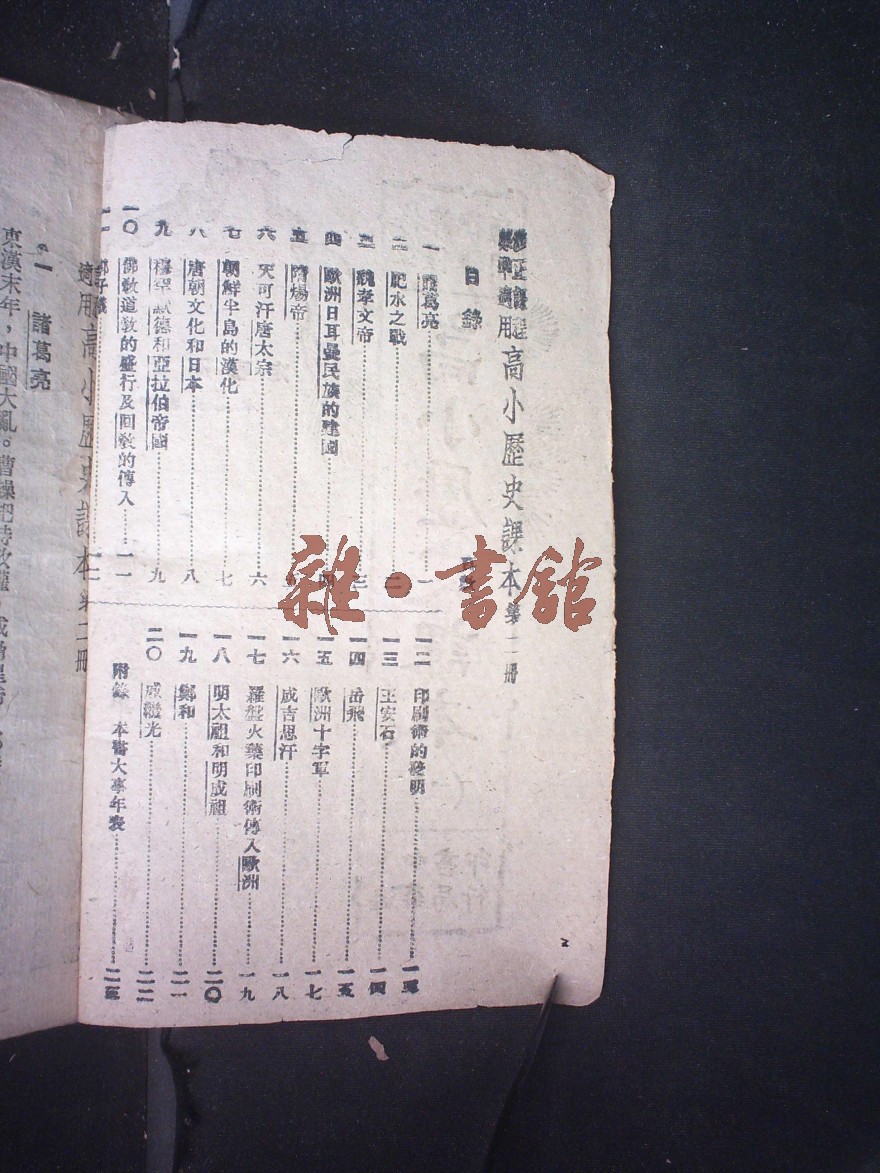 修正課程標準適用 高小歷史課本 第二冊
目錄
一 諸葛亮 一
二 肥水之戰 二
三 魏孝文帝 三
四 歐洲日耳曼民族的建國 四
五 隋煬帝
六 天可汗唐太宗 六
七 朝鮮半島的漢化 七
八 唐朝文化和日本 八
九 穆罕默德和亞拉伯帝國 九
一〇 佛教道教的盛行及回教的傳入 一一
一一 郭子儀
一二 印刷術的發明 一三
一三 王安石 一四
一四 岳飛 一五
一五 歐洲十字軍 一七
一六 成吉思汗 一八
一七 羅盤火藥印刷術傳入歐洲 一九
一八 明太祖和明成祖 二〇
一九 鄭和 二一
二〇 戚繼光 二二
附錄 本書大事年表 二三
雜·書館
適用高小歷史課本 第二冊
一 諸葛亮
東漢末年，中國大亂。曹操把持政權